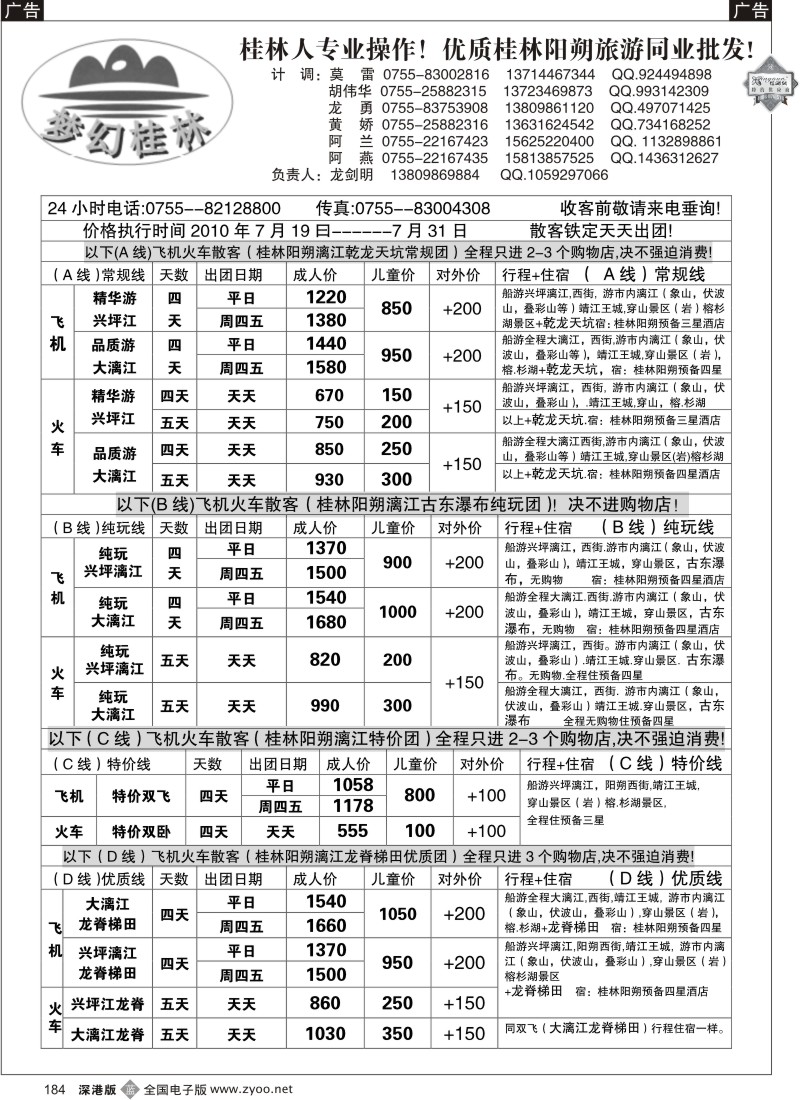 广告
广告
梦幻桂林
桂林人专业操作！优质桂林阳朔旅游同业批发！
计 调：莫 雷 0755-83002816 13714467344 QQ.924494898
胡伟华 0755-25882315 13723469873 QQ.993142309
龙 勇 0755-83753908 13809861120 QQ.497071425
黄 娇 0755-25882316 13631624542 QQ.734168252
阿 兰 0755-22167423 15625220400 QQ. 1132898861
阿 燕 0755-22167435 15813857525 QQ.1436312627
负责人：龙剑明 13809869884 QQ.1059297066
24 小时电话:0755--82128800 传真:0755--83004308 收客前敬请来电垂询!
价格执行时间 2010 年 7 月 19 日------7 月 31 日 散客铁定天天出团!
以下(A 线)飞机火车散客（桂林阳朔漓江乾龙天坑常规团）全程只进 2-3 个购物店,决不强迫消费!
（A 线）常规线 天数 出团日期 成人价 儿童价 对外价 行程+住宿 （ A 线）常规线
飞机 精华游 兴坪江 四天 平日 1220 850 +200 船游兴坪漓江,西街, 游市内漓江（象山，伏波
周四五 1380 山，叠彩山等）靖江王城,穿山景区（岩）榕杉
湖景区+乾龙天坑宿: 桂林阳朔预备三星酒店
品质游 大漓江 四天 平日 1440 950 +200 船游全程大漓江，西街,游市内漓江（象山，伏
周四五 1580 波山，叠彩山等），靖江王城,穿山景区（岩），
榕.杉湖+乾龙天坑，宿：桂林阳朔预备四星
火车 精华游 兴坪江 四天 天天 670 150 +150 船游兴坪漓江，西街, 游市内漓江（象山，伏
波山，叠彩山），.靖江王城,穿山，榕.杉湖
五天 天天 750 200 以上+乾龙天坑.宿：桂林阳朔预备三星酒店
品质游 大漓江 四天 天天 850 250 +150 船游全程大漓江西街,游市内漓江（象山，伏波
山，叠彩山等）靖江王城,穿山景区(岩)榕杉湖
五天 天天 930 300 以上+乾龙天坑.宿：桂林阳朔预备四星酒店
以下(B 线)飞机火车散客（桂林阳朔漓江古东瀑布纯玩团）！决不进购物店！
（B 线）纯玩线 天数 出团日期 成人价 儿童价 对外价 行程+住宿 （B 线）纯玩线
飞机 纯玩 兴坪漓江 四天 平日 1370 900 +200 船游兴坪漓江，西街.游市内漓江（象山，伏波
周四五 1500 山，叠彩山），靖江王城，穿山景区，古东瀑
布，无购物 宿：桂林阳朔预备四星酒店
纯玩 大漓江 四天 平日 1540 1000 +200 船游全程大漓江.西街.游市内漓江（象山，伏
周四五 1680 波山，叠彩山），靖江王城，穿山景区，古东
瀑布，无购物 宿：桂林阳朔预备四星酒店
火车 纯玩 兴坪漓江 五天 天天 820 200 +150 船游兴坪漓江，西街。游市内漓江（象山，伏
波山，叠彩山）.靖江王城.穿山景区. 古东瀑
布。无购物.全程住预备四星
纯玩 大漓江 五天 天天 990 300 船游全程大漓江，西街. 游市内漓江（象山，
伏波山，叠彩山）靖江王城.穿山景区，古东
瀑布 全程无购物住预备四星
以下（C 线）飞机火车散客（桂林阳朔漓江特价团）全程只进 2-3 个购物店,决不强迫消费!
（C 线）特价线 天数 出团日期 成人价 儿童价 对外价 行程+住宿 （C 线）特价线
飞机 特价双飞 四天 平日 1058 800 +100 船游兴坪漓江，阳朔西街,靖江王城,
周四五 1178 穿山景区（岩）榕.杉湖景区,
全程住预备三星
火车 特价双卧 四天 天天 555 100 +100
以下（D 线）飞机火车散客（桂林阳朔漓江龙脊梯田优质团）全程只进 3 个购物店,决不强迫消费!
（D 线）优质线 天数 出团日期 成人价 儿童价 对外价 行程+住宿 （D 线）优质线
飞机 大漓江 龙脊梯田 四天 平日 1540 1050 +200 船游全程大漓江,西街,靖江王城，游市内漓江
周四五 1660 （象山，伏波山，叠彩山）,穿山景区（岩），
榕.杉湖+龙脊梯田 宿：桂林阳朔预备四星
兴坪漓江 龙脊梯田 四天 平日 1370 950 +200 船游兴坪漓江,阳朔西街,靖江王城, 游市内漓
周四五 1500 江（象山，伏波山，叠彩山）,穿山景区（岩）
榕杉湖景区
+龙脊梯田 宿：桂林阳朔预备四星酒店
火车 兴坪江龙脊 五天 天天 860 250 +150
大漓江龙脊 五天 天天 1030 350 +150 同双飞（大漓江龙脊梯田）行程住宿一样。
184 深港版 蓝 全国电子版 www.zyoo.net